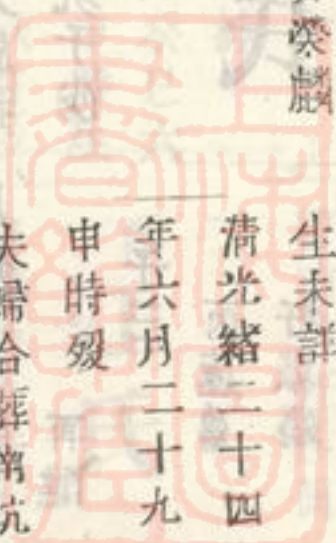 榮麟
生未詳
清光緒二十四
年六月二十九
申時歿
夫婦合葬